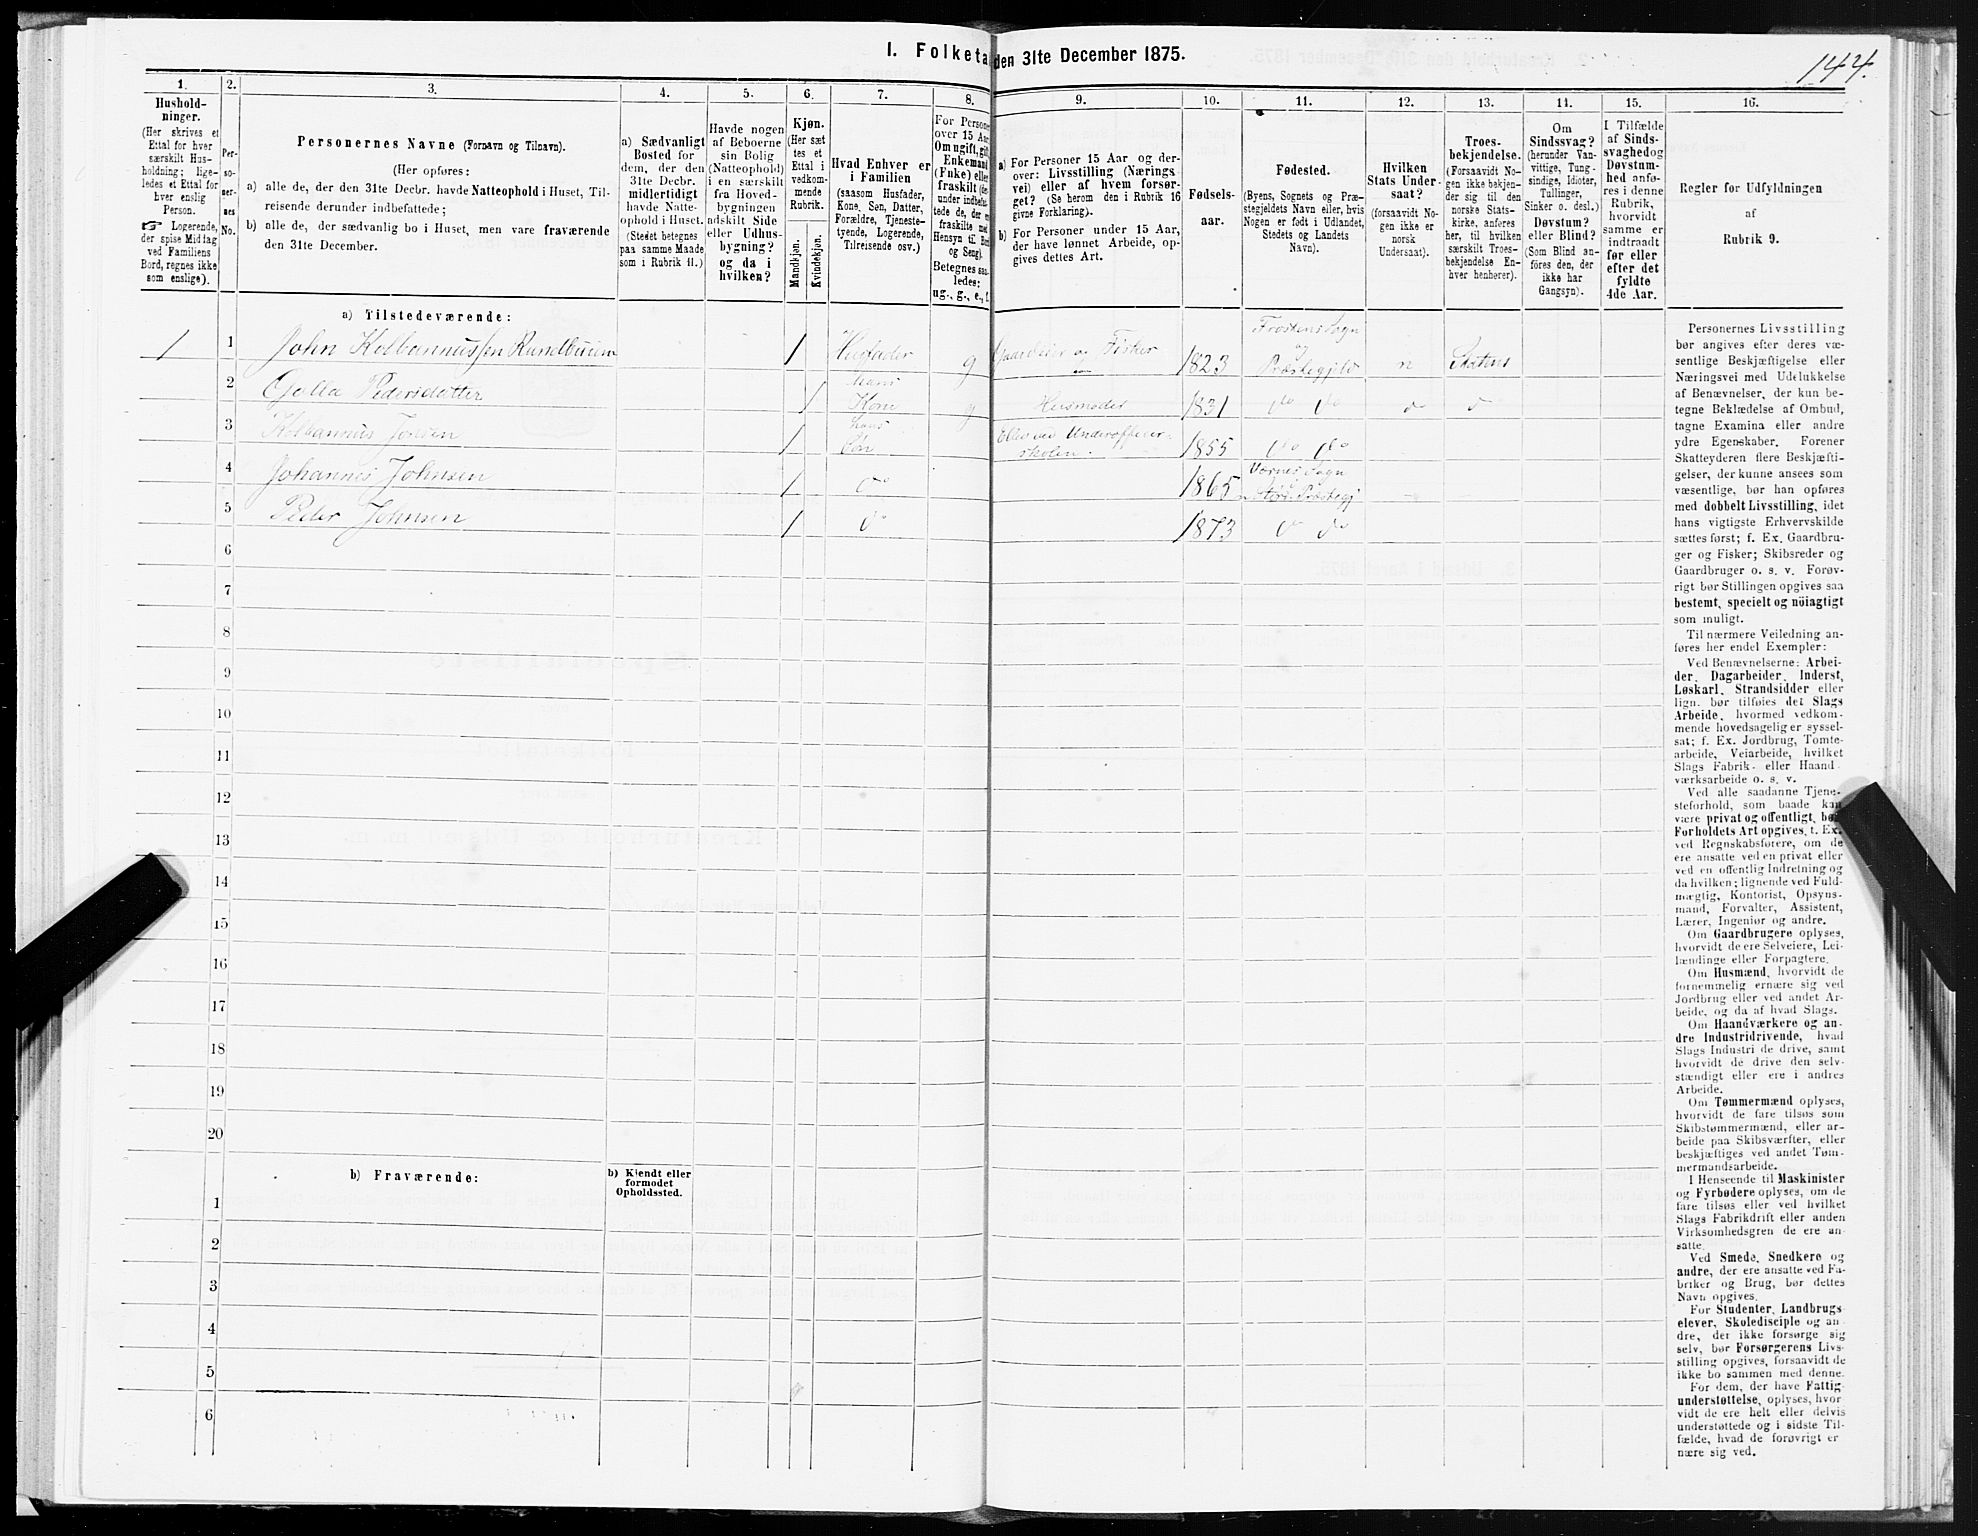 I. Folketa den 31te December 1875.
144.
1.
Hushold-
ninger.
(Her skrives et
Ettal for hver
særskilt Hus-
holdning; lige-
ledes et Ettal for
hver enslig
Person.
☞ Logerende,
der spise Middag
ved Familiens
Bord, regnes ikke
som enslige).
2.
Per-
so-
ner-
nes
No.
3.
Personernes Navne (Fornavn og Tilnavn).
(Her opføres:
a) alle de, der den 31te Decbr. havde Natteophold i Huset, Til-
reisende derunder indbefattede;
b) alle de, der sædvanlig bo i Huset, men vare fraværende
den 31te December.
4.
a) Sædvanligt
Bosted for
dem, der den
31te Decbr.
midlertidigt
havde Natte-
ophold i Huset.
(Stedet betegnes
paa samme Maade
som i Rubrik 11.)
5.
Havde nogen
af Beboerne
sin Bolig
(Natteophold)
i en særskilt
fra Hoved-
bygningen
adskilt Side
eller Udhus-
bygning?
og da i
hvilken?
6.
Kjøn.
(Her sæt
tes et
Ettal i
vedkom-
mende
Rubrik.
Mandkjøn.
Kvindekjøn.
7.
Hvad Enhver er
i Familien
(saasom Husfader,
Kone, Søn, Datter,
Forældre, Tjeneste-
tyende, Logerende,
Tilreisende osv.)
8.
For Persone
over 15 Aa
Om ugift, gif
Enkemand
(Enke) elle
fraskilt (de
under indbef
tede de, der e
fraskilte med
Hensyn til Bo
og Seng).
Betegnes saa
ledes:
ug., g., e., f.
9.
a) For Personer 15 Aar og der-
over: Livsstilling (Nærings
vei) eller af hvem forsør-
get? (Se herom den i Rubrik 16
givne Forklaring).
b) For Personer under 15 Aar,
der have lønnet Arbeide, op-
gives dettes Art.
10.
Fødsels-
aar.
11.
Fødested.
(Byens, Sognets og Præ-
stegjeldets Navn eller, hvis
Nogen er født i Udlandet,
Stedets og Landets
Navn).
12.
Hvilken
Stats Under-
saat?
(forsaavidt No-
gen ikke er
norsk
Undersaat).
13.
Troes-
bekjendelse.
(Forsaavidt No-
gen ikke bekjen-
der sig til den
norske Stats-
kirke, anføres
her, til hvilken
særskilt Troes-
bekjendelse En-
hver henhører).
14.
Om
Sindssvag?
(herunder Van-
vittige, Tung-
sindige, Idioter,
Tullinger,
Sinker o. desl.)
Døvstum?
eller Blind?
(Som Blind an-
föres den, der
ikke har
Gangsyn).
15.
I Tilfælde
af Sinds-
svaghed og
Døvstum-
hed anfø-
res i denne
Rubrik,
hvorvidt
samme er
indtraadt
før eller
efter det
fyldte
4de Aar.
16.
Regler for Udfyldningen
af
Rubrik 9.
a) Tilstedeværende:
1 1 John Kolbannussen 1 Husfader g Gaardeier og Fisker 1823 Frostens Sogn og Præstegjeld n Statens
2 Pedersdatter 1 hans Kone g Husmoder 1831 do do d d
3 Kolbannus Johnsen 1 hans Søn Elev ved Underofficier-
skolen. 1855 do do
4 Johannes Johnsen 1 do 1865 Værnes Sogn Præstegj
5 Peder Johnsen 1 do 1873 do do
6
7
8
9
10
11
12
13
14
15
16
17
18
19
20
b) Fraværende:
b) Kjendt eller
formodet
Opholdssted.
1
2
3
4
5
6
Personernes Livsstilling
bør angives efter deres væ-
sentlige Beskjæftigelse eller
Næringsvei med Udelukkelse
af Benævnelser, der kun be-
tegne Beklædelse af Ombud,
tagne Examina eller andre
ydre Egenskaber. Forener
Skatteyderen flere Beskjæfti-
gelser, der kunne ansees som
væsentlige, bør han opføres
med dobbelt Livsstilling, idet
hans vigtigste Erhvervskilde
sættes først; f. Ex. Gaardbru-
ger og Fisker; Skibsreder og
Gaardbruger o. s. v. Forøv-
rigt bør Stillingen opgives saa
bestemt, specielt og nöiagtigt
som muligt.
Til nærmere Veiledning an-
føres her endel Exempler:
Ved Benævnelserne: Arbei-
der, Dagarbeider, Inderst,
Løskarl, Strandsidder eller
lign. bør tilføies det Slags
Arbeide, hvormed vedkom-
mende hovedsagelig er syssel-
sat; f. Ex. Jordbrug, Tomte-
arbeide, Veiarbeide, hvilket
Slags Fabrik- eller Haand
værksarbeide o. s. v.
Ved alle saadanne Tjene-
steforhold, som baade kan
være privat og offentligt, bør
Forholdets Art opgives, t. Ex.
ved Regnskabsførere, om de
ere ansatte ved en privat eller
ved en offentlig Indretning og
da hvilken; lignende ved Fuld-
mægtig, Kontorist, Opsyns-
mand, Forvalter, Assistent,
Lærer, Ingeniør og andre.
Om Gaardbrugere oplyses,
hvorvidt de ere Selveiere, Lei-
lændinge eller Forpagtere.
Om Husmænd, hvorvidt de
fornemmelig ernære sig ved
Jordbrug eller ved andet Ar-
beide, og da af hvad Slags.
Om Haandværkere og an-
dre Industridrivende, hvad
Slags Industri de drive, samt
hvorvidt de drive den selv-
stændigt eller ere i andres
Arbeide.
Om Tømmermænd oplyses,
hvorvidt de fare tilsøs som
Skibstømmermænd, eller ar-
beide paa Skibsværfter, eller
beskjæftiges ved andet Tøm-
mermandsarbeide.
I Henseende til Maskinister
og Fyrbødere oplyses, om de
fare tilsøs eller ved hvilket
Slags Fabrikdrift eller anden
Virksomhedsgren de ere an-
satte.
Ved Smede, Snedkere og
andre, der ere ansatte ved Fa-
briker og Brug, bør dettes
Navn opgives.
For Studenter, Landbrugs
elever, Skoledisciple og an
dre, der ikke forsørge sig
selv, bør Forsørgerens Livs-
stilling opgives, forsaavidt de
ikke bo sammen med denne.
For dem, der have Fattig
understøttelse, oplyses, hvor
vidt de ere helt eller delvis
understøttede og i sidste Til-
fælde, hvad de forøvrigt er
nære sig ved.